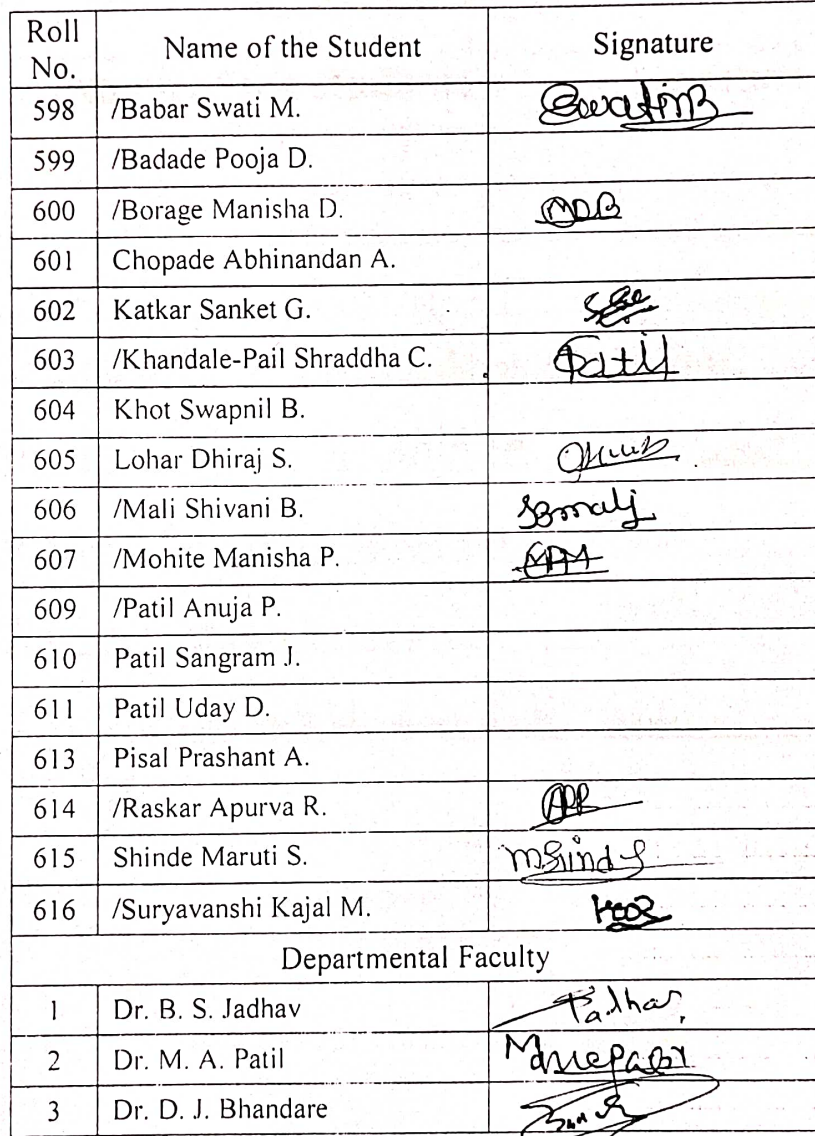 Roll No. Name of the Student Signature
598 /Babar Swati M. SwatiMB
599 /Badade Pooja D.
600 /Borage Manisha D. MDB
601 Chopade Abhinandan A.
602 Katkar Sanket G.
603 /Khandale-Pail Shraddha C. Patil
604 Khot Swapnil B.
605 Lohar Dhiraj S.
606 /Mali Shivani B. SBmali
607 /Mohite Manisha P. MPM
609 /Patil Anuja P.
610 Patil Sangram J.
611 Patil Uday D.
613 Pisal Prashant A.
614 /Raskar Apurva R.
615 Shinde Maruti S.
616 /Suryavanshi Kajal M.
Departmental Faculty
1 Dr. B. S. Jadhav
2 Dr. M. A. Patil
3 Dr. D. J. Bhandare